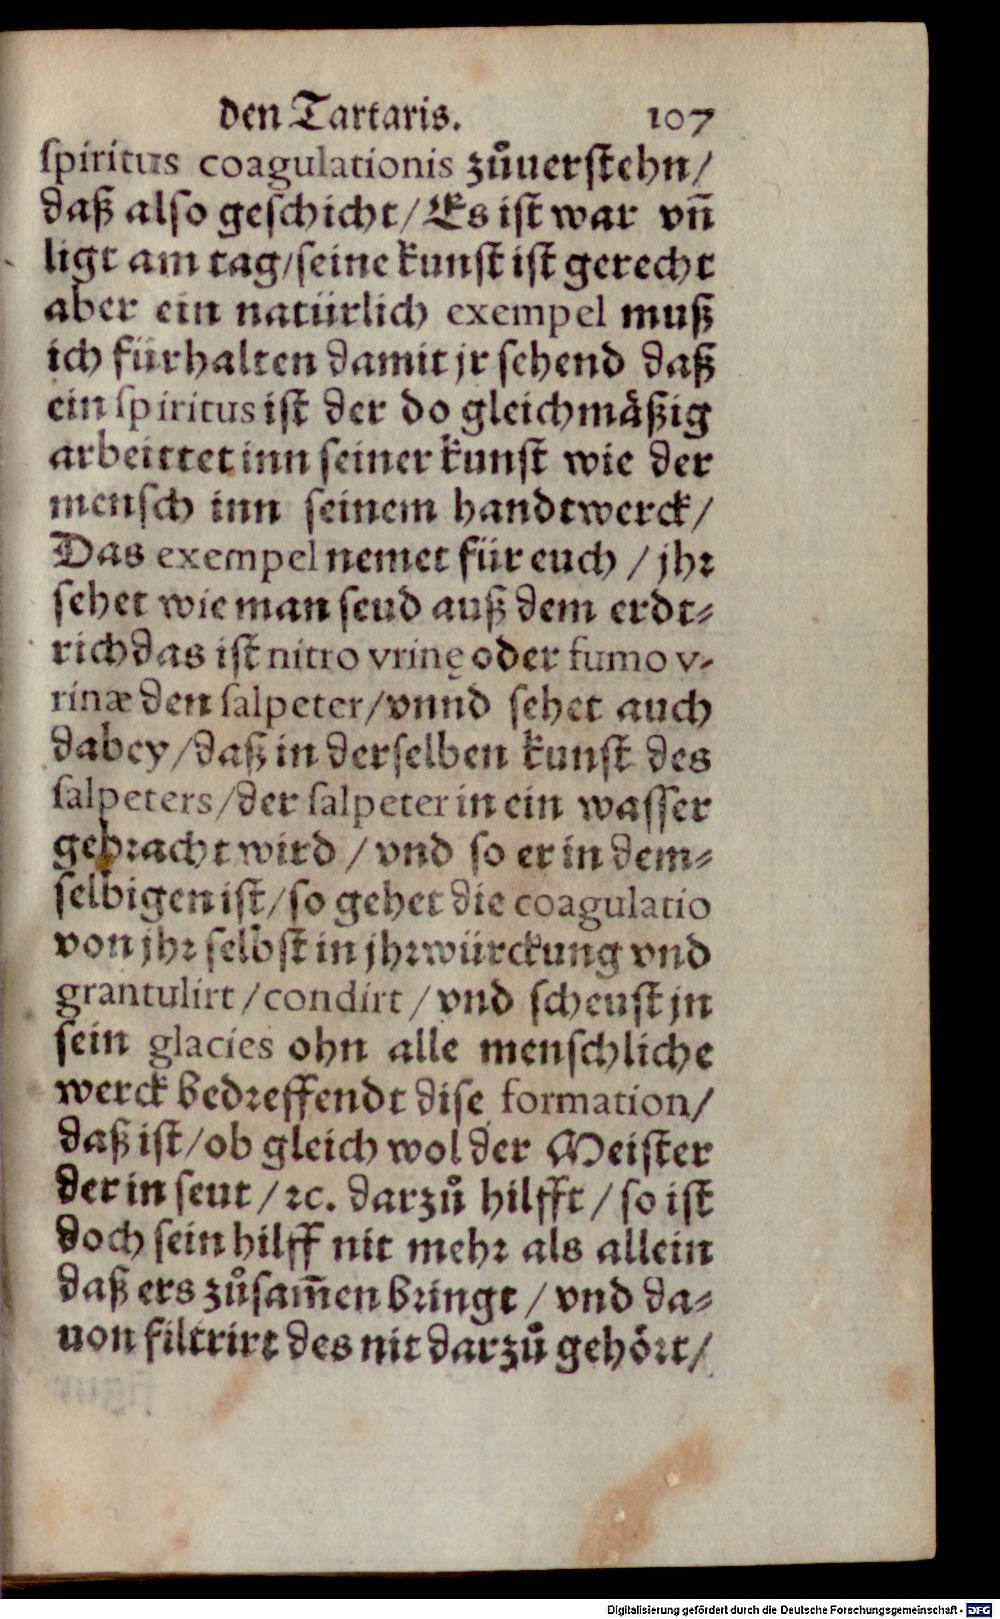 den Tartaris. 107
spiritus coagulationis zůuerstehn/
daß also geschicht/ Es ist war vñ
ligt am tag/ seine kunst ist gerecht
aber ein natürlich exempel muß
ich fürhalten damit jr sehend daß
ein spiritus ist der do gleichmäßig
arbeittet inn seiner kunst wie der
mensch inn seinem handtwerck/
Das exempel nemet für euch / jhr
sehet wie man seud auß dem erdt-
rich das ist nitro vrinę oder fumo v-
rinæ den salpeter/ vnnd sehet auch
dabey/ daß in derselben kunst des
salpeters/ der salpeter in ein wasser
gebracht wird / vnd so er in dem-
selbigen ist/ so gehet die coagulatio
von jhr selbst in jhr würckung vnd
grantulirt / condirt / vnd scheust jn
sein glacies ohn alle menschliche
werck bedreffendt dise formation/
daß ist/ ob gleich wol der Meister
der in seut / ꝛc. darzů hilfft / so ist
doch sein hilff nit mehr als allein
daß ers zůsam̃en bringt / vnd da-
uon filtrirt des nit darzů gehört/
Digitalisierung gefördert durch die Deutsche Forschungsgemeinschaft - DFG